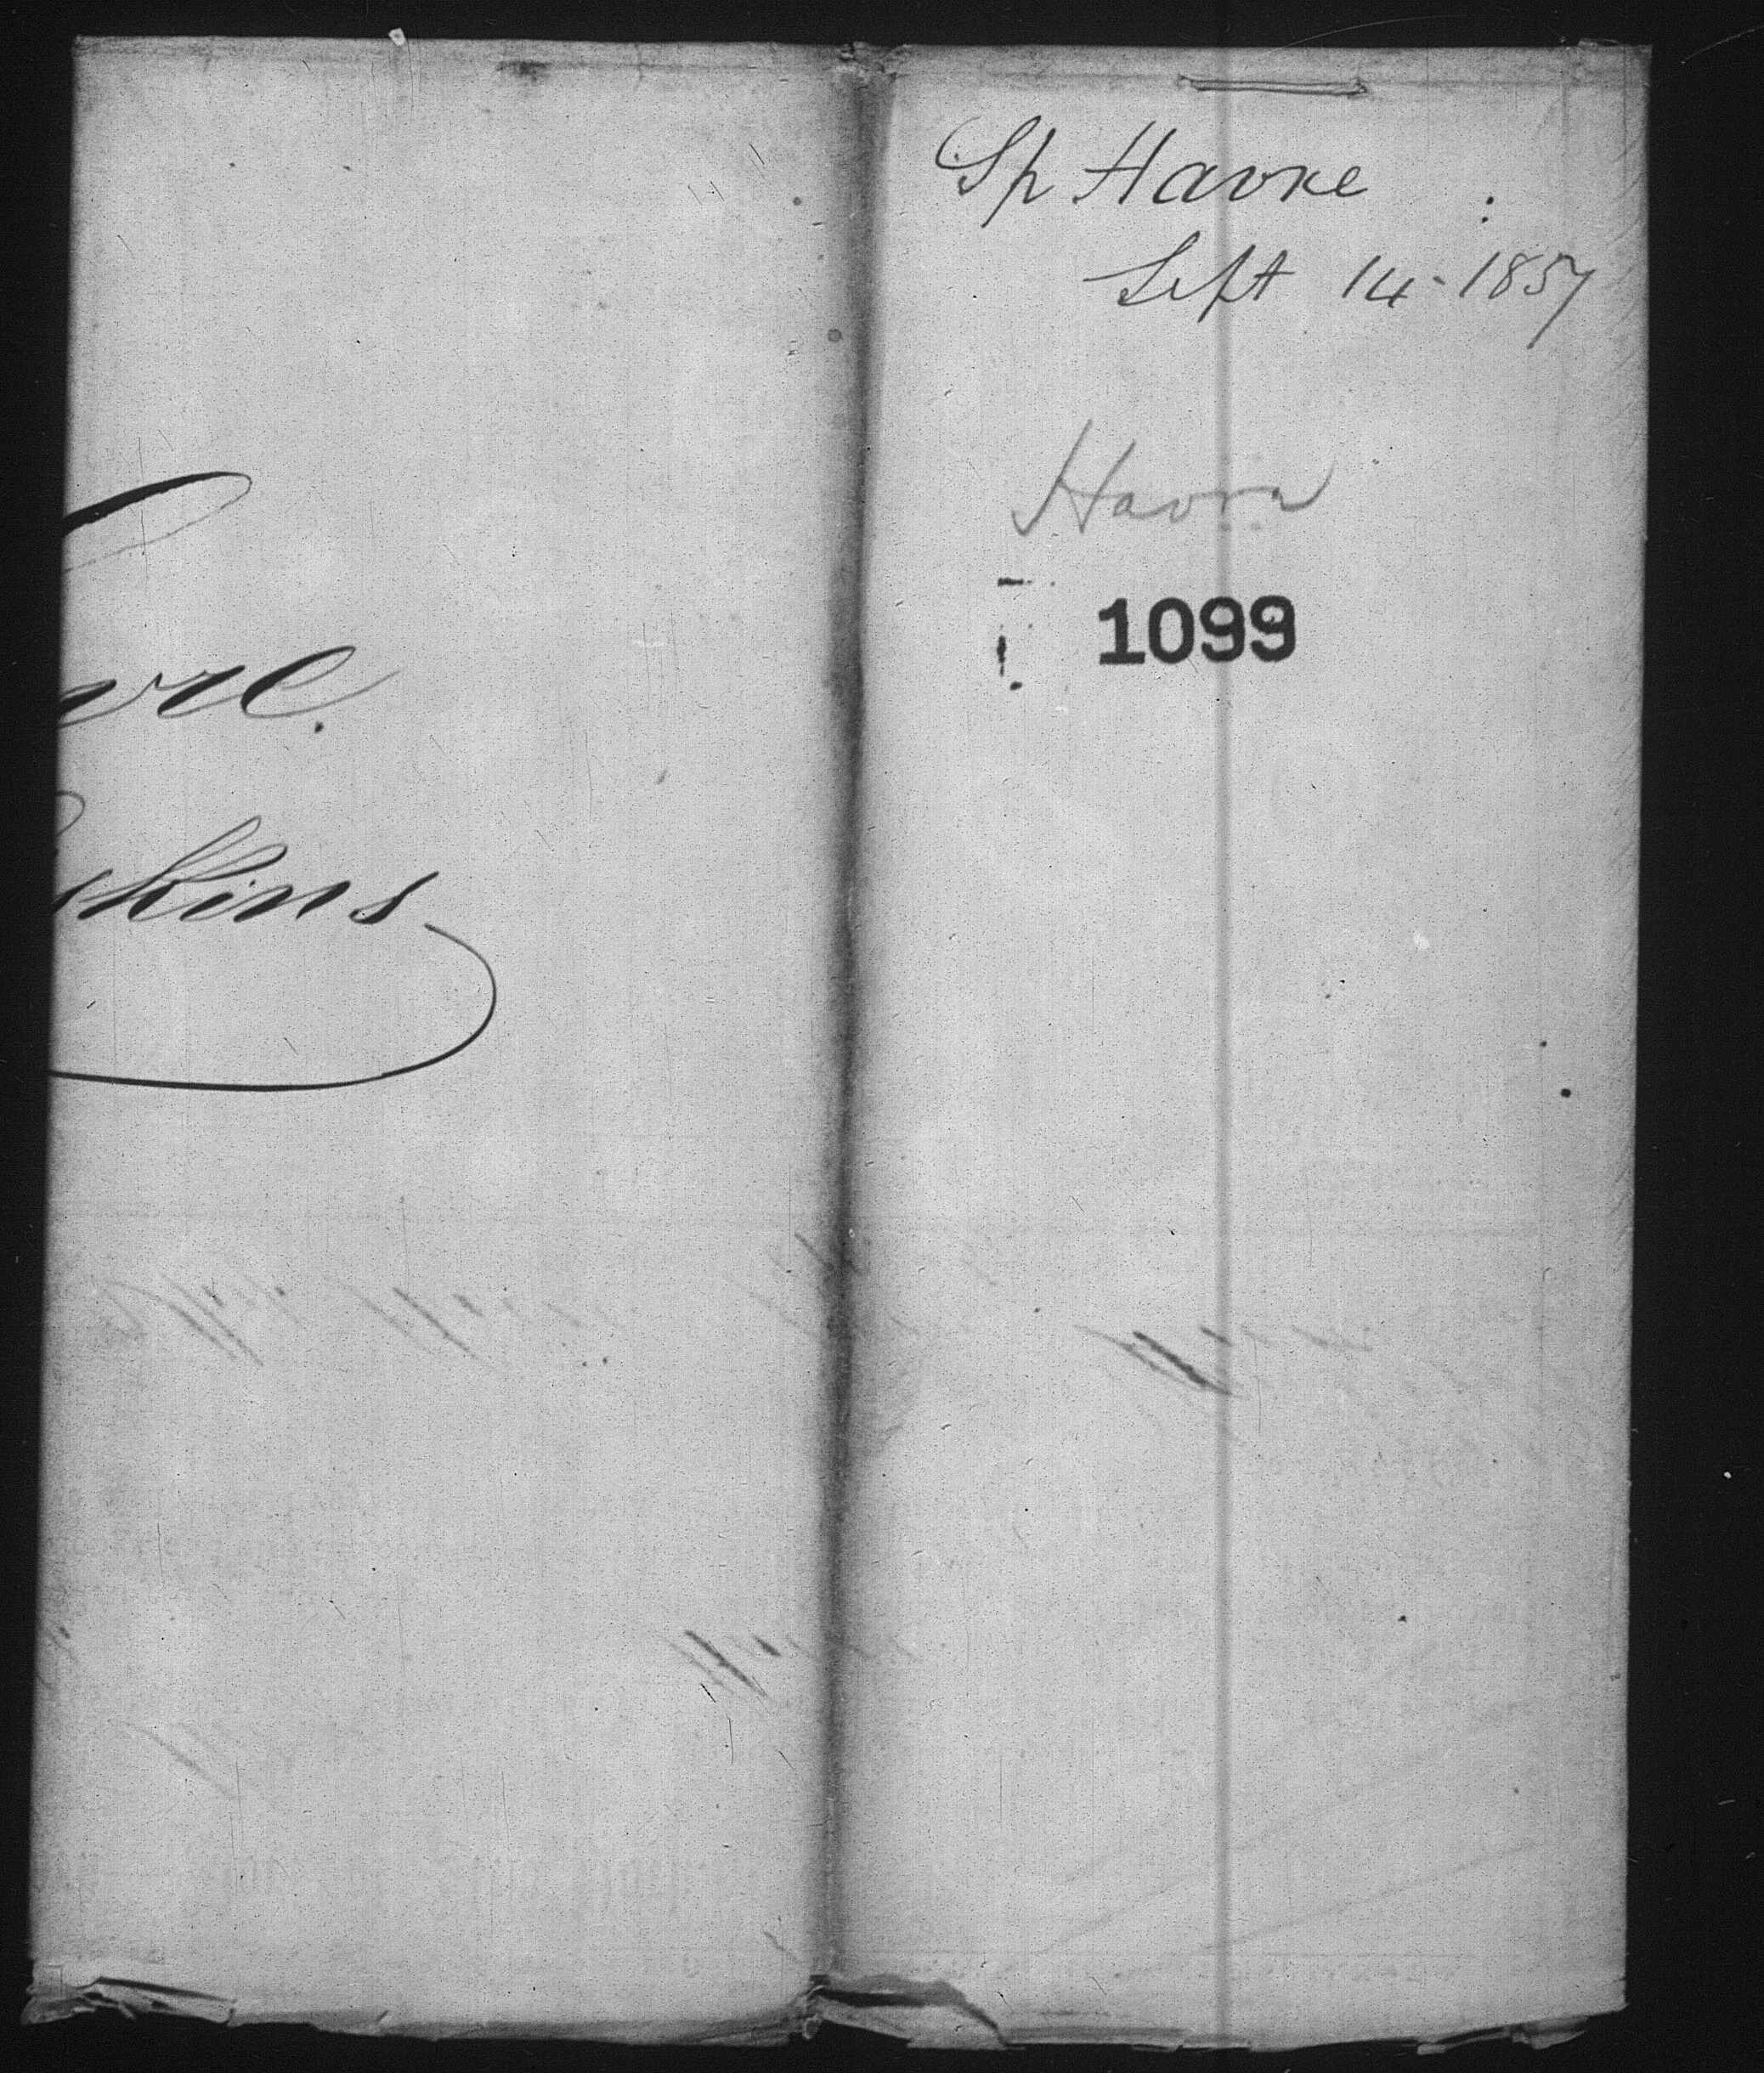 vre.
skins
Sp Havre
Sept 14-1857
Havre
1099